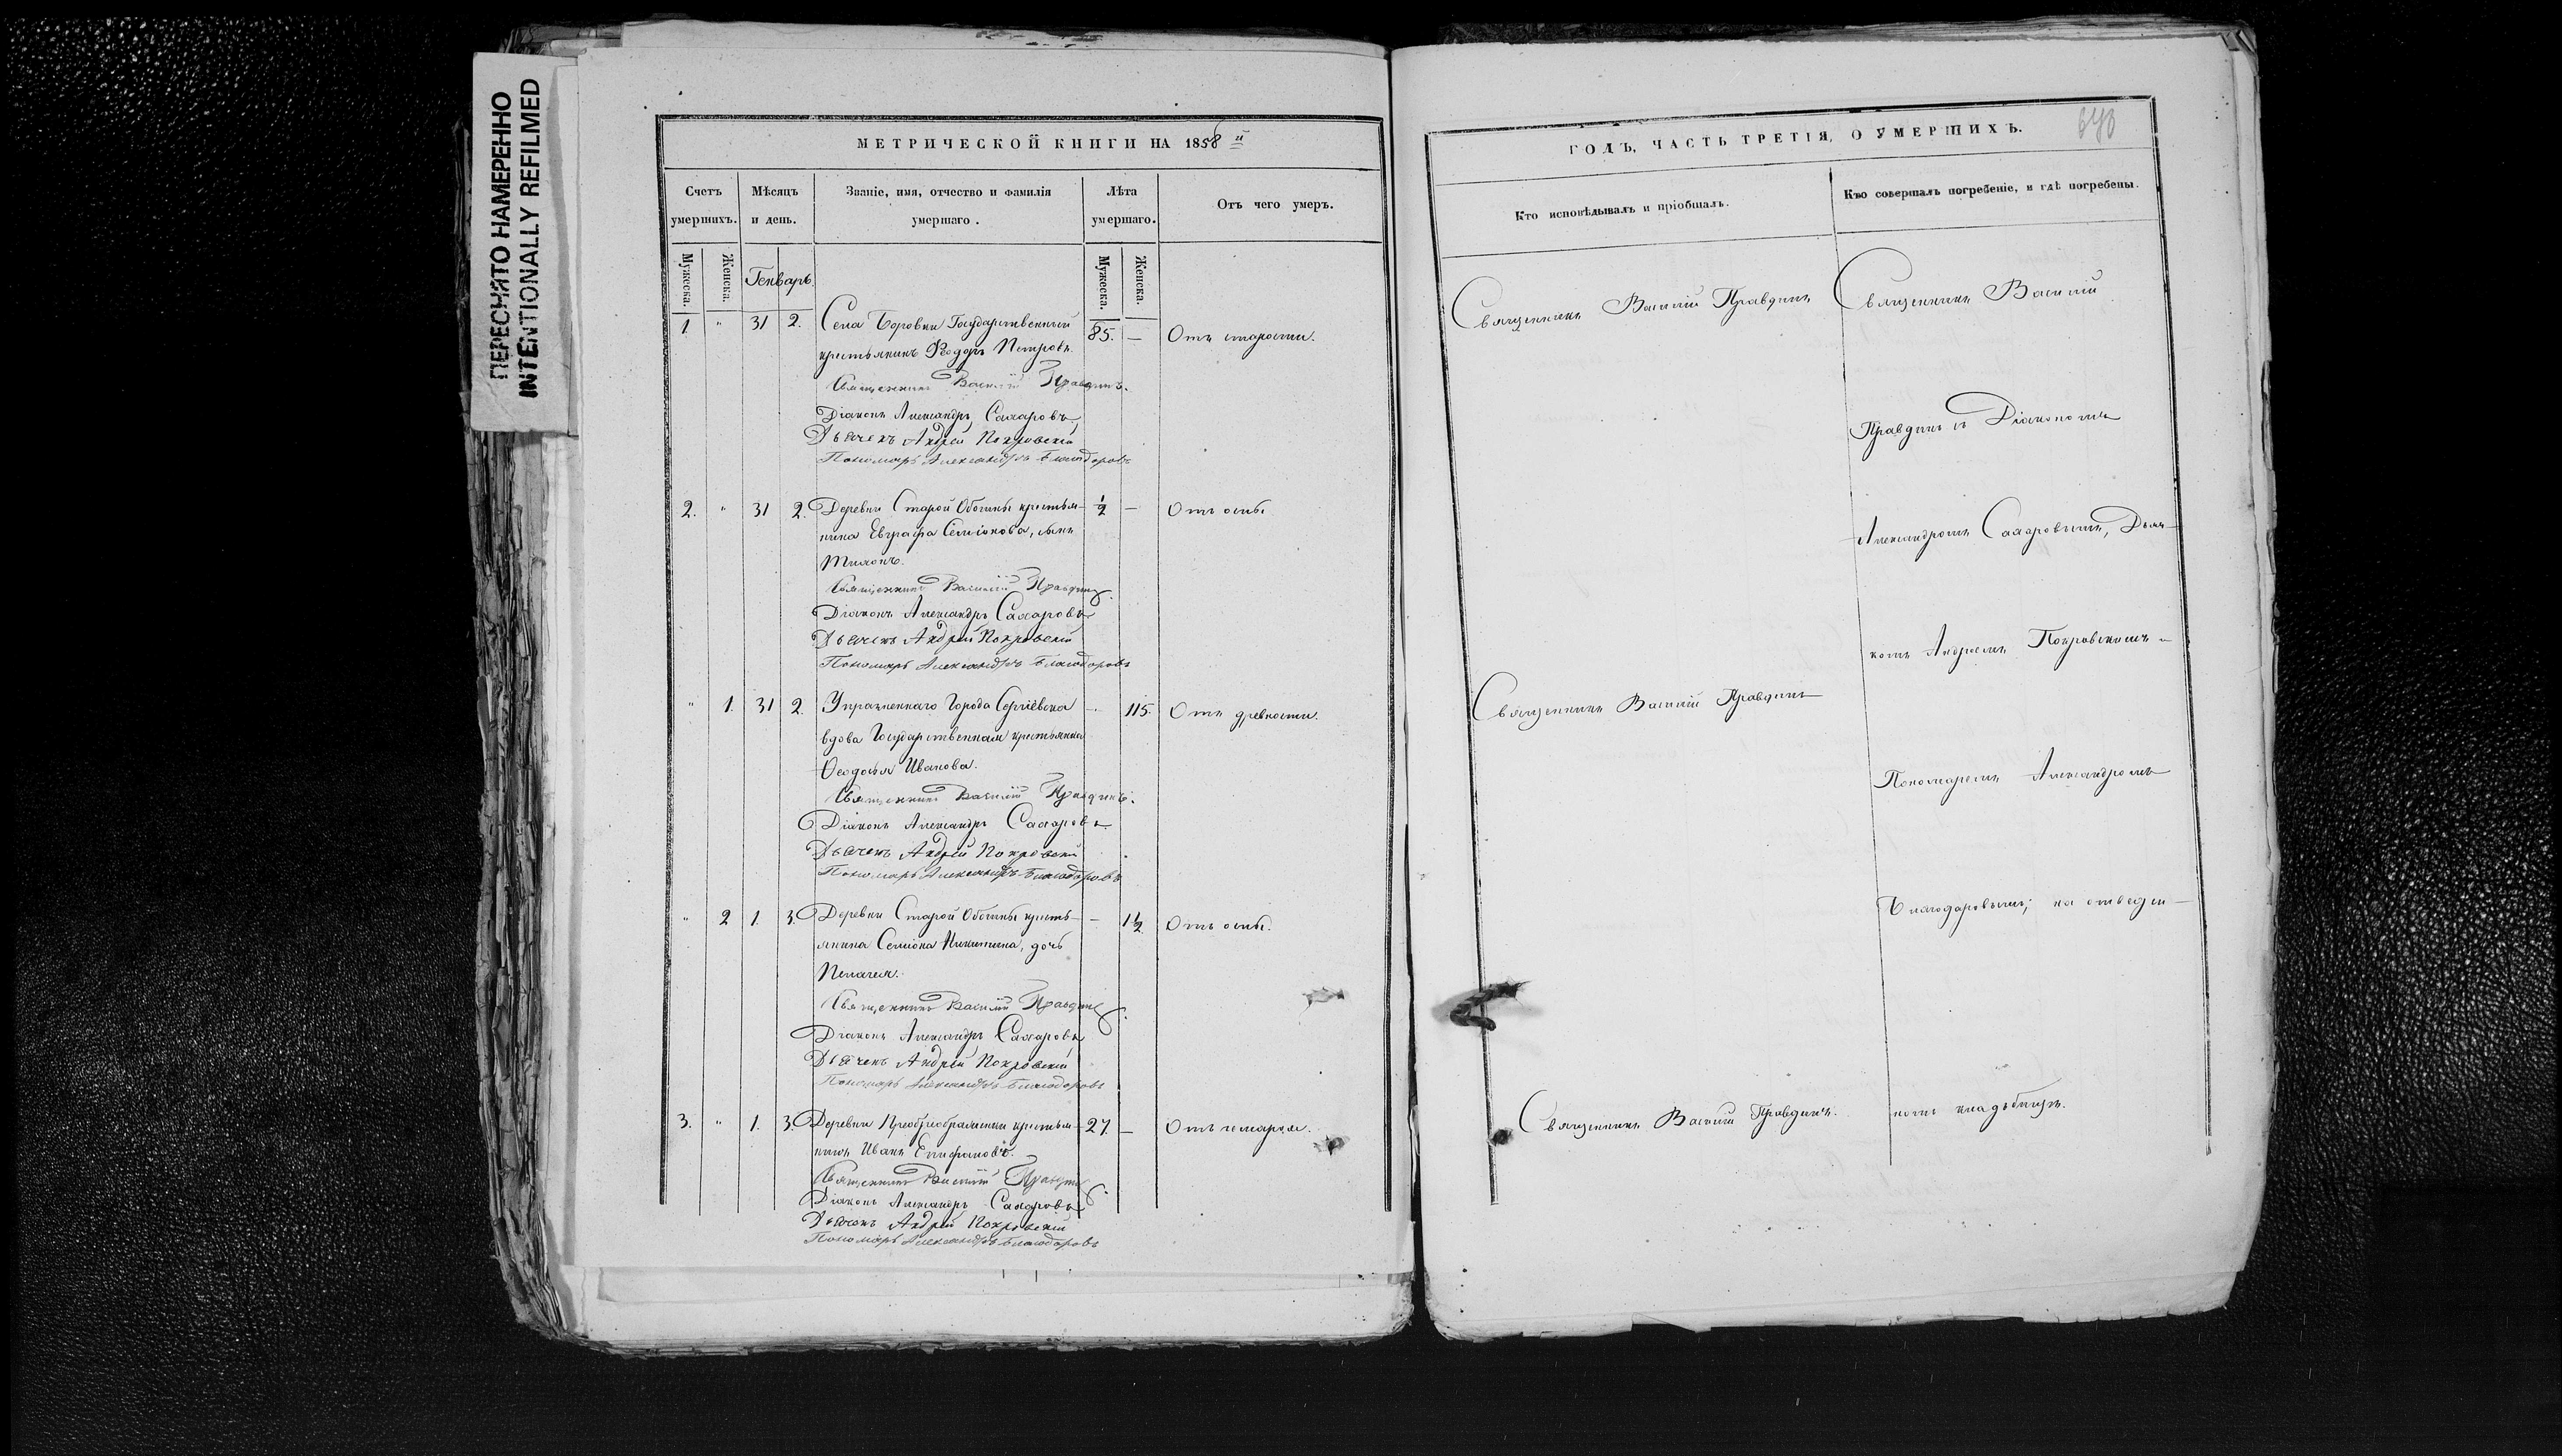 ПЕРЕСНЯТО НАМЕРЕННО
INTENTIONALLY REFILMED
МЕТРИЧЕСКОЙ КНИГИ НА 1858й
Счетъ умершихъ. Мѣсяцъ и день. Званіе, имя, отчество и фамилія умершаго. Лѣта умершаго. Отъ чего умеръ.
Мужеска. Женска. Мужеска. Женска.
Генварь.
1. " 31 2. Села Боровки Государственный 85. — Отъ старости.
крестьянинъ Ѳеодоръ Петровъ.
Священникъ Василій Правдинъ.
Діаконъ Александръ Сахаровъ
Дьячекъ Андрей Покровскій
Пономарь Александръ Благодаровъ
2. " 31 2. Деревни Старой Обошны крестья- 1/2 — Отъ оспы
нина Евграфа Семіонова, сынъ
Тихонъ.
Священникъ Василій Правдинъ.
Діаконъ Александръ Сахаровъ
Дьячекъ Андрей Покровскій
Пономарь Александръ Благодаровъ
" 1. 31 2. Упраженнаго Города Сергіевска — 115. Отъ древности.
вдова Государственная крестьянка
Ѳеодосья Иванова.
Священникъ Василій Правдинъ.
Діаконъ Александръ Сахаровъ
Дьячекъ Андрей Покровскій
Пономарь Александръ Благодаровъ
" 2 1. 3. Деревни Старой Обошны кресть- — 1 1/2 Отъ оспы.
янина Семіона Никитина, дочь
Пелагея.
Священникъ Василій Правдинъ.
Діаконъ Александръ Сахаровъ
Дьячекъ Андрей Покровскій
Пономарь Александръ Благодаровъ
3. " 1. 3. Деревни крестья- 27. — Отъ
нинъ Иванъ Епифановъ.
Священникъ Василій Правдинъ.
Діаконъ Александръ Сахаровъ
Дьячекъ Андрей Покровскій
Пономарь Александръ Благодаровъ
ГОДЪ, ЧАСТЬ ТРЕТІЯ, О УМЕРШИХЪ.
Кто исповѣдывалъ и пріобщалъ. Кто совершалъ погребеніе, и гдѣ погребены.
Священникъ Василій Правдинъ
Священникъ Василій Правдинъ
Священникъ Василій Правдинъ.
Священникъ Василій
Правдинъ съ Діакономъ
Александромъ Сахаровымъ, Дьяч-
комъ Андреемъ Покровскимъ и
Пономаремъ Александромъ
Благодаровымъ; на отведен-
номъ кладбищѣ.